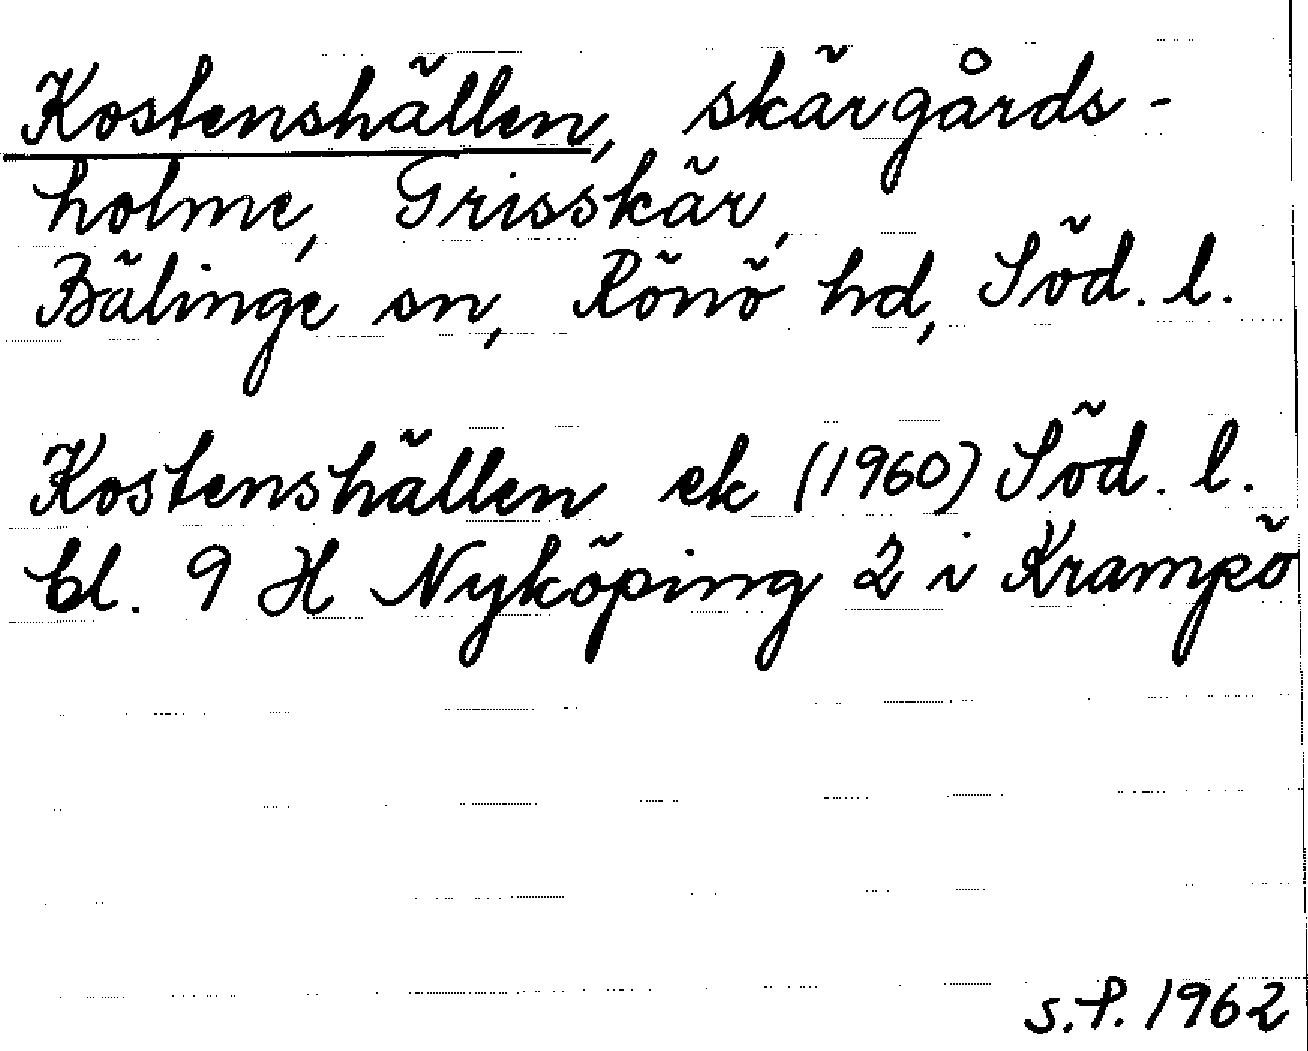 Kostenshällen, skärgårds-
holme, Grisskär,
Bälinge sn, Rönö hd, Söd. l.
Kostenshällen ek (1960) Söd. l.
bl. 9 H Nyköping 2 i Krampö
S.P. 1962